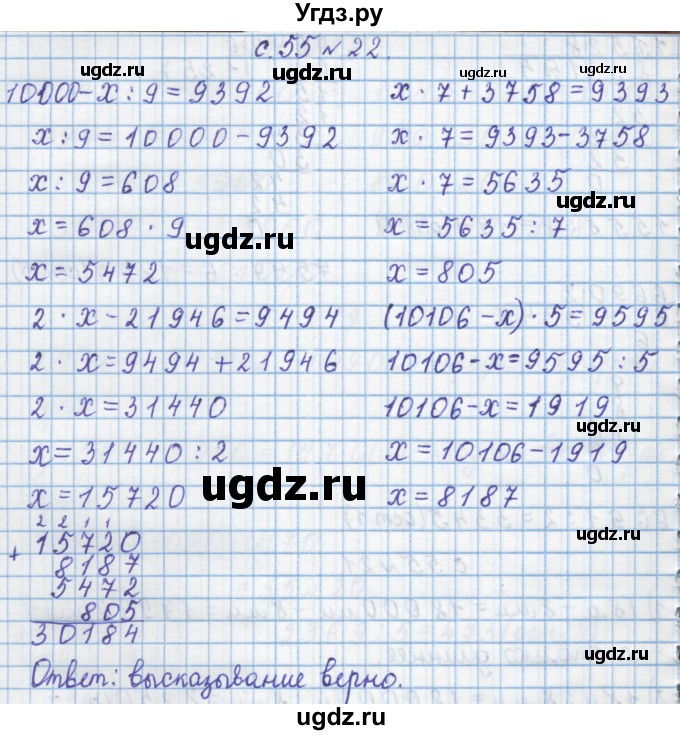 Угдз.ру
с. 55 № 22.
10000 - x : 9 = 9392
x : 9 = 10000 - 9392
x : 9 = 608
x = 608 · 9
x = 5472
x · 7 + 3758 = 9393
x · 7 = 9393 - 3758
x · 7 = 5635
x = 5635 : 7
x = 805
2 · x - 21946 = 9494
2 · x = 9494 + 21946
2 · x = 31440
x = 31440 : 2
x = 15720
(10106 - x) · 5 = 9595
10106 - x = 9595 : 5
10106 - x = 1919
x = 10106 - 1919
x = 8187
2 2 1 1
+ 15720
8187
5472
805
30184
Ответ: высказывание верно.
ugdz.ru
ugdz.ru
ugdz.ru
ugdz.ru
ugdz.ru
ugdz.ru
ugdz.ru
ugdz.ru
ugdz.ru
ugdz.ru